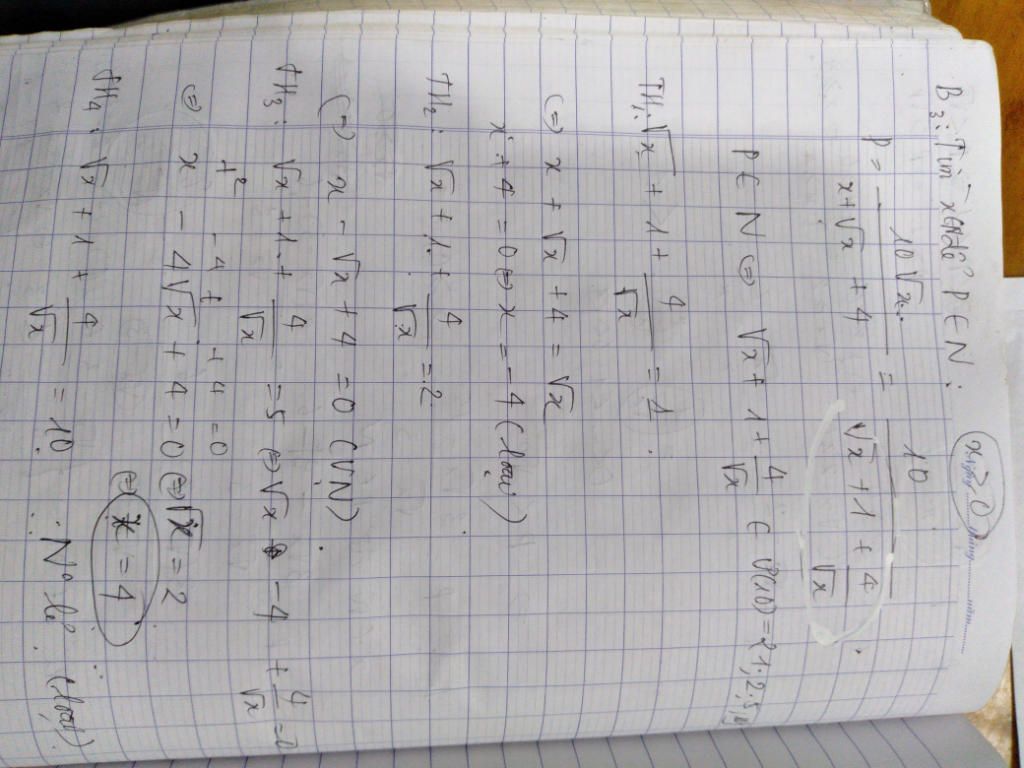 x ≥ 0
B3: Tìm x∈R để P ∈ N.
P = 10√x / (x + √x + 4) = 10 / (√x + 1 + 4/√x)
P ∈ N ⇔ √x + 1 + 4/√x ∈ Ư(10) = {1; 2; 5; 10
TH1: √x + 1 + 4/√x = 1.
(=) x + √x + 4 = √x
x + 4 = 0 ⇔ x = -4 (loại)
TH2: √x + 1 + 4/√x = 2
(=) x - √x + 4 = 0 (VN)
TH3: √x + 1 + 4/√x = 5 ⇔ √x - 4 + 4/√x = 0
t² - 4t + 4 = 0
⇔ x - 4√x + 4 = 0 ⇔ √x = 2
⇔ x = 4
TH4: √x + 1 + 4/√x = 10 ∴ Nº lẻ ∴ (loại).